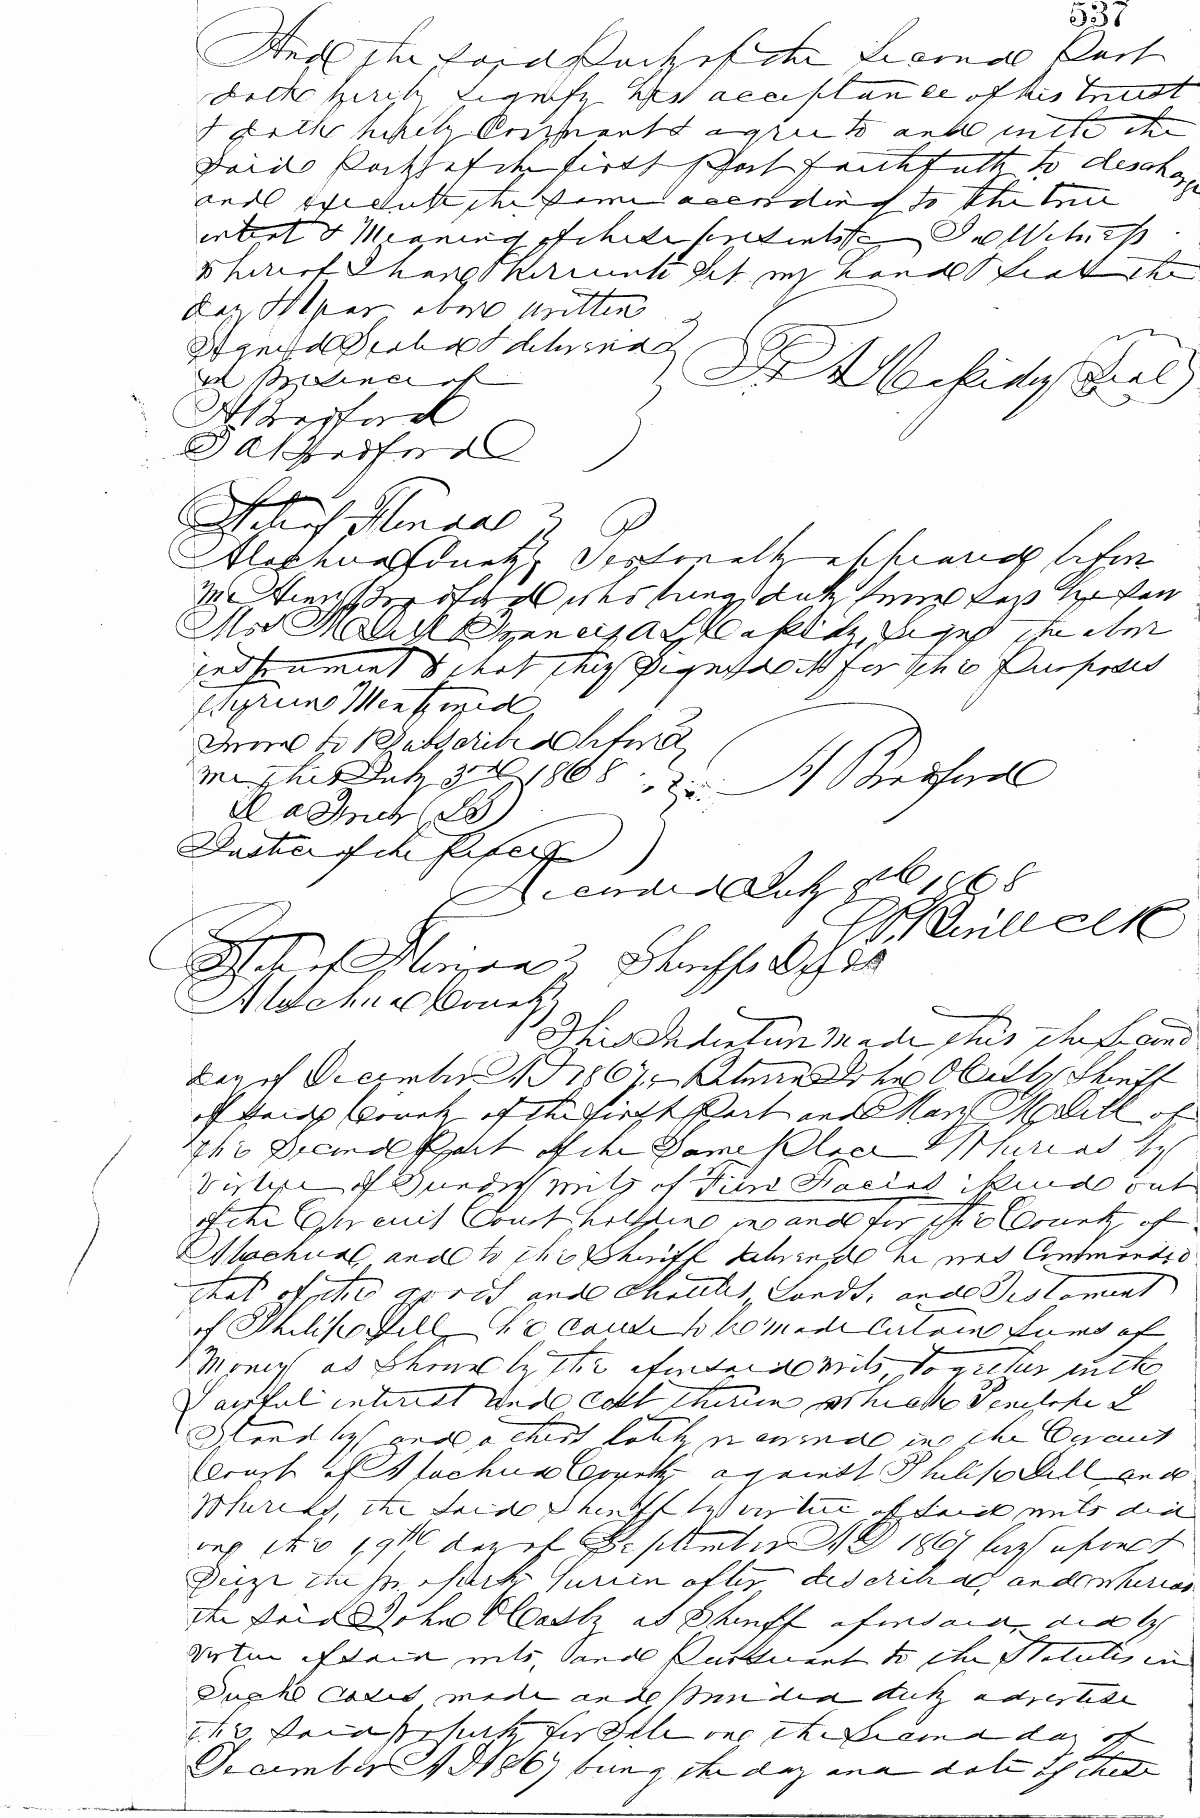 537
And the said Party of the Second Part
doth hereby signify his acceptance of his trust
& doth hereby Covenant & agree to and with the
said Party of the first Part faithfully to descharge
and execute the same according to the true
intent & Meaning of these presents In Witness
whereof I have hereunto Set my hand & Seal the
day & Year above written
Signed Sealed & delivered
in Presence of
H Bradford
T A Bradford
(Seal)
State of Florida
Alachua County Personally appeared before
me Henry Bradford who being duly sworn says he saw
Mrs M Dell & Francis A L Cassidy, Signed the above
instrument & that they Signed it for the Purposes
therein Mentioned
Sworn to & Subscribed before
me this July 3rd 1868
H Bradford
Justice of the Peace
Recorded July 8th 1868
Clk
State of Florida Sheriffs Deed
Alachua County
This Indenture made this the Second
day of December AD 1867, Between John O Casby Sheriff
of said County of the first Part and Mary M Dell of
the Second Part of the Same Place Whereas by
virtue of Sundry writs of Fieri Facias issued out
of the Circuit Court holden in and for the County of
Alachua, and to the Sheriff delivered he was Commanded
that of the goods and chattles, Lands, and Testament
of Philip Dell he cause to be made certain sums of
Money as Shown by the aforesaid writs, together with
Lawful interest and cost therein which Penelope L
Standly and others lately recovered in the Circuit
Court of Alachua County against Philip Dell and
Whereas, the said Sheriff by virtue of said writs did
on the 19th day of September AD 1867 levy upon &
Seize the property herein after described, and whereas
the said John O Casby as Sheriff aforesaid did by
virtue of said writs, and Pursuant to the Statutes in
Such cases made and provided duly advertise
the said property for Sale on the Second day of
December AD 1867 being the day and date of these